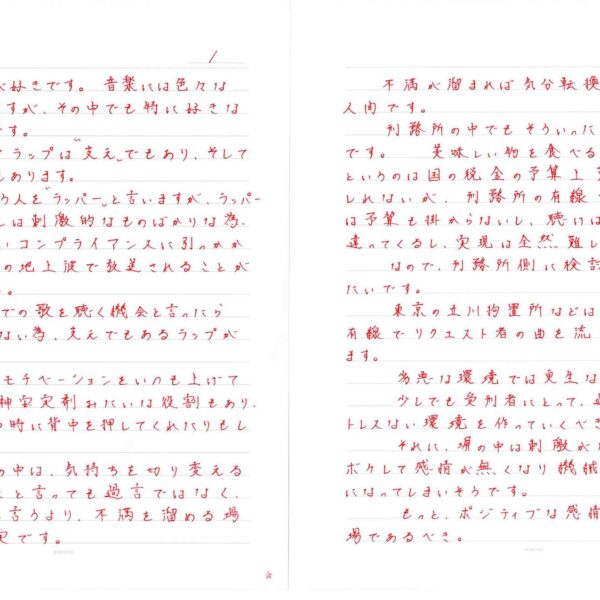 1
が好きです。音楽には色々な
すが、その中でも特に好きな
です。
ラップは”支え”でもあり、そして
しあります。
う人を”ラッパー”と言いますが、ラッパー
しは刺激的なものばかりな為、
いコンプライアンスに引っかか
の地上波で放送されることが
。
での歌を聴く機会と言ったら
ない為、支えでもあるラップが
モチベーションをいつも上げて
神安定剤みたいな役割もあり、
時に背中を押してくれたりもし
の中は、気持ちを切り変える
と言っても過言ではなく、
言うより、不満を溜める場
です。
不満が溜まれば気分転換
人間です。
刑務所の中でもそういった
です。 美味しい物を食べる
というのは国の税金の予算上
しれないが、刑務所の有線
は予算も掛からないし、聴けは
違ってくるし、実現は全然難し
なので、刑務所側に検討
たいです。
東京の立川拘置所などは
有線でリクエスト者の曲を流
ます。
劣悪な環境では更生は
少しでも受刑者にとって、
トレスない環境を作っていくべき
それに、塀の中は刺激が
ボケして感情が無くなり機械
になってしまいそうです。
もっと、ポジティブな感情
場であるべき。